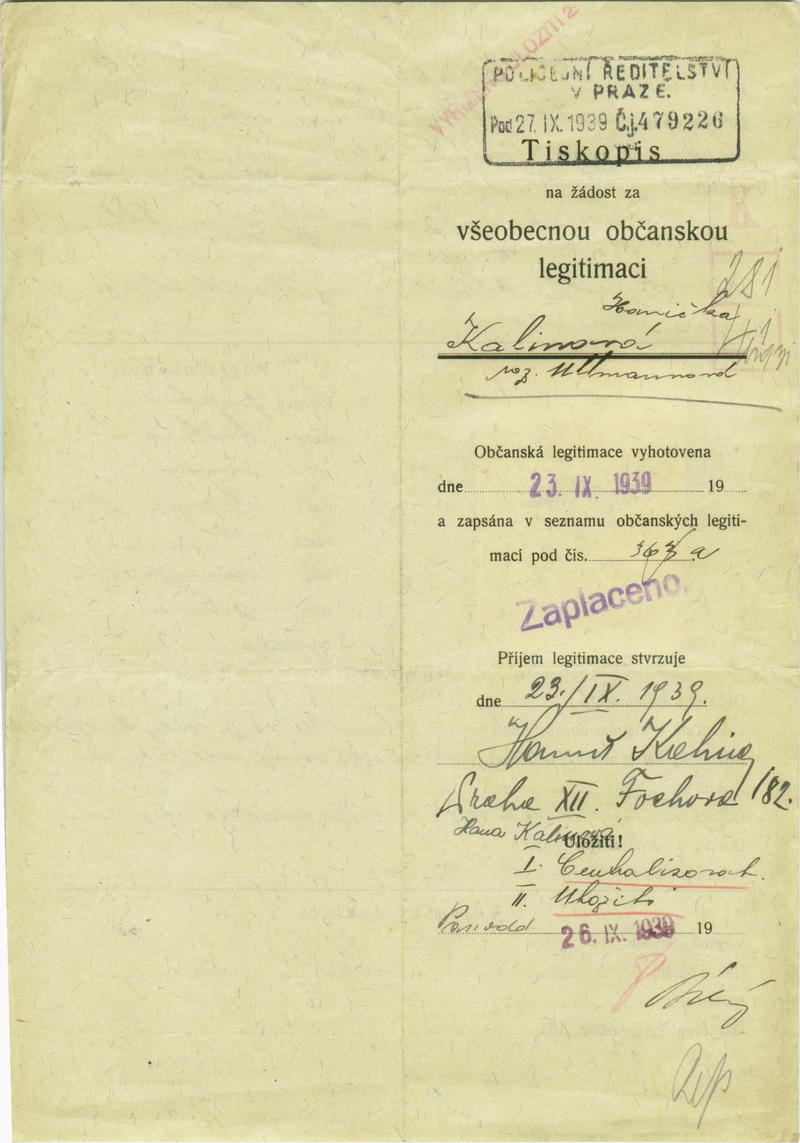 POLICEJNÍ ŘEDITELSTVÍ
V PRAZE.
Pod 27. IX. 1939 Čj. 479226
Tiskopis
na žádost za
všeobecnou občanskou
legitimaci
Hanička
Kalinová
roz. Ultmannová
Občanská legitimace vyhotovena
dne 23. IX. 1939 19
a zapsána v seznamu občanských legiti-
mací pod čís. a
Zaplaceno.
Příjem legitimace stvrzuje
dne 23./IX. 1939.
Praha XII. Fochova 182.
Hana Kalinová
Uložiti!
I. Centralisovat.
II. Uložiti
26. IX. 1939 19